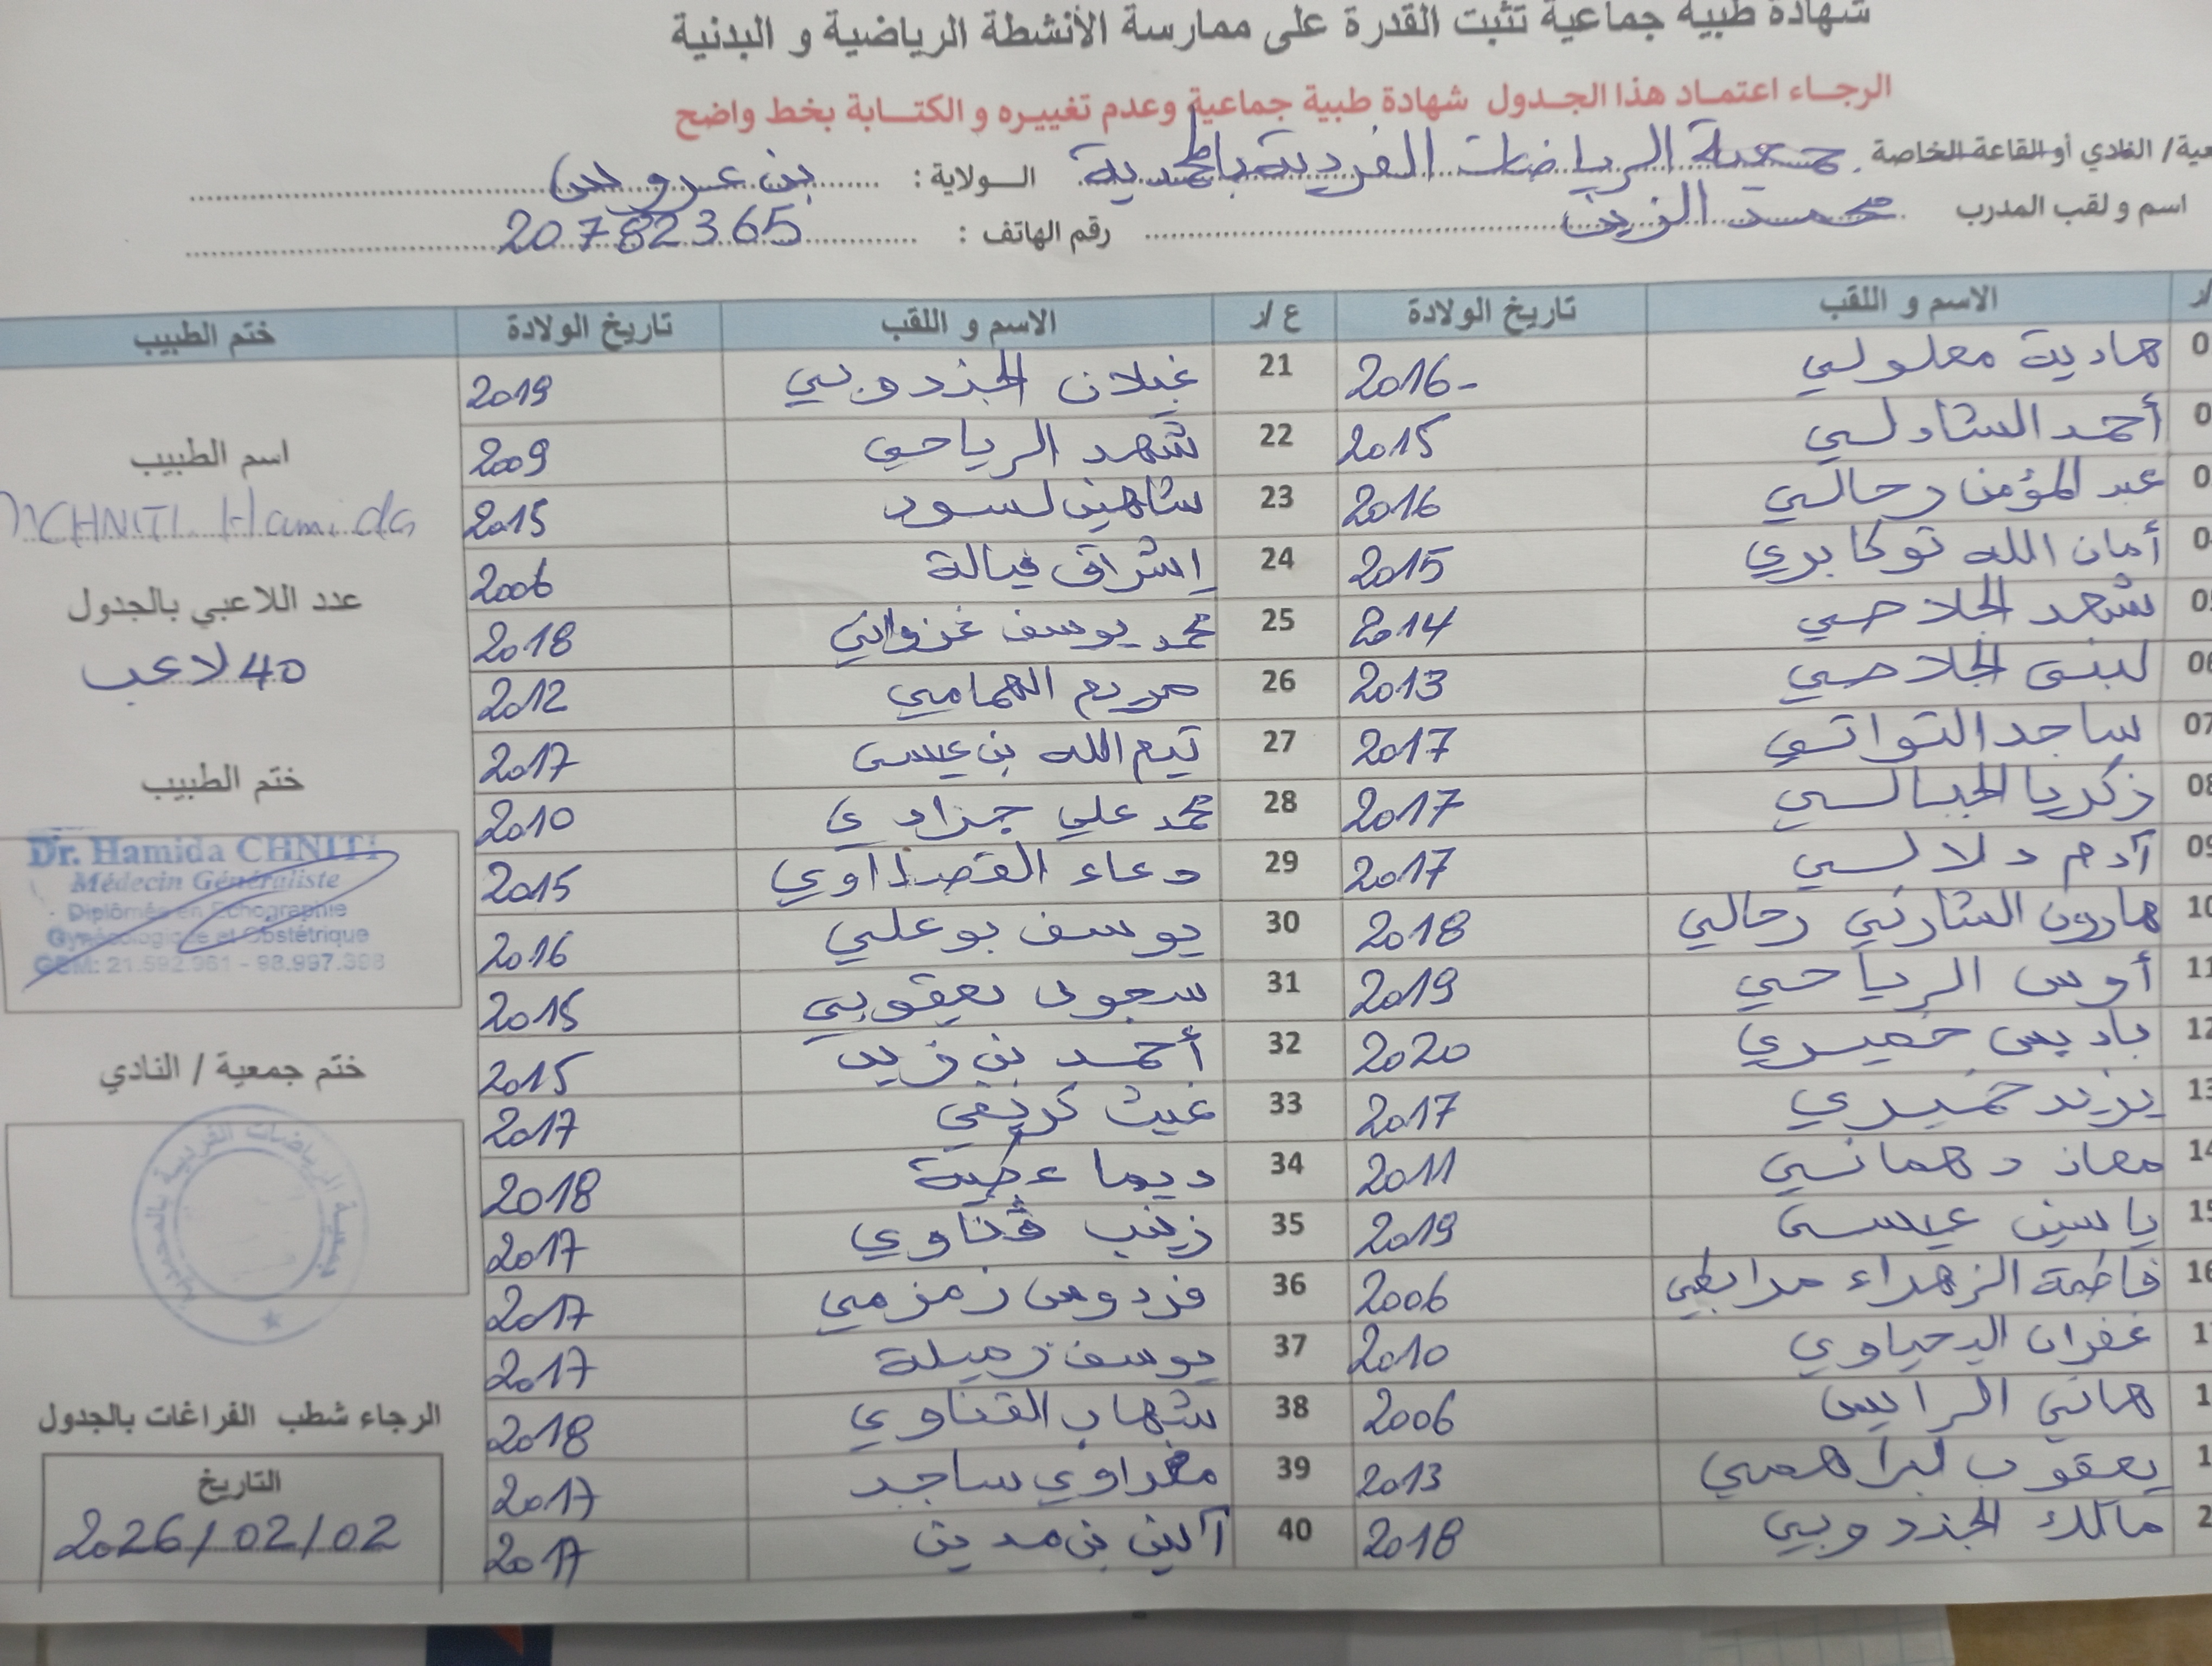 شهادة طبية جماعية تثبت القدرة على ممارسة الأنشطة الرياضية و البدنية
الرجاء اعتماد هذا الجدول شهادة طبية جماعية وعدم تغييره و الكتابة بخط واضح
عية/ النادي أو القاعة الخاصة جمعية الرياضات الفردية بالمحمدية الولاية : بن عروس
اسم و لقب المدرب محمد الزين رقم الهاتف : 20782365
/ر الاسم و اللقب تاريخ الولادة ع /ر الاسم و اللقب تاريخ الولادة ختم الطبيب
0 هادية معلولي 2016- 21 غيلان الجندوبي 2019
0 أحمد الشاذلي 2015 22 شهد الرياحي 2009
0 عبد المؤمن رحالي 2016 23 شاهين لسود 2015
0 أمان الله توكابري 2015 24 إشراق فيالة 2006
05 شهد الجلاصي 2014 25 محمد يوسف غزواني 2018
06 لبنى الجلاصي 2013 26 مريم الهمامي 2012
07 ساجد التواتي 2017 27 تيم الله بن عيسى 2017
08 زكريا الجبالي 2017 28 محمد علي جرادي 2010
09 آدم دلالي 2017 29 دعاء 2015
10 هارون رحالي 2018 30 يوسف بوعلي 2016
11 أوس الرياحي 2019 31 سجى يعقوبي 2015
12 باديس خميري 2020 32 أحمد بن زيد 2015
13 يزيد خميري 2017 33 غيث كريفي 2017
14 معاذ دهماني 2011 34 ديما 2018
15 ياسين عيسى 2019 35 زينب ڨناوي 2017
16 فاطمة الزهراء مرابطي 2006 36 فردوس زمزمي 2017
1 غفران اليحياوي 2010 37 يوسف زميلة 2017
1 هاني الرايس 2006 38 شهاب القناوي 2018
1 يعقوب لبراهمي 2013 39 مغراوي ساجد 2017
2 مالك الجندوبي 2018 40 آلين بن مدين 2017
اسم الطبيب
CHNITI Hamida
عدد اللاعبي بالجدول
40 لاعب
ختم الطبيب
Dr. Hamida CHNITI
Médecin Généraliste
Diplômée en Echographie
Gynécologique et Obstétrique
GSM: 21.592.981 - 98.997.398
ختم جمعية / النادي
جمعية الرياضات الفردية بالمحمدية
الرجاء شطب الفراغات بالجدول
التاريخ
2026/02/02